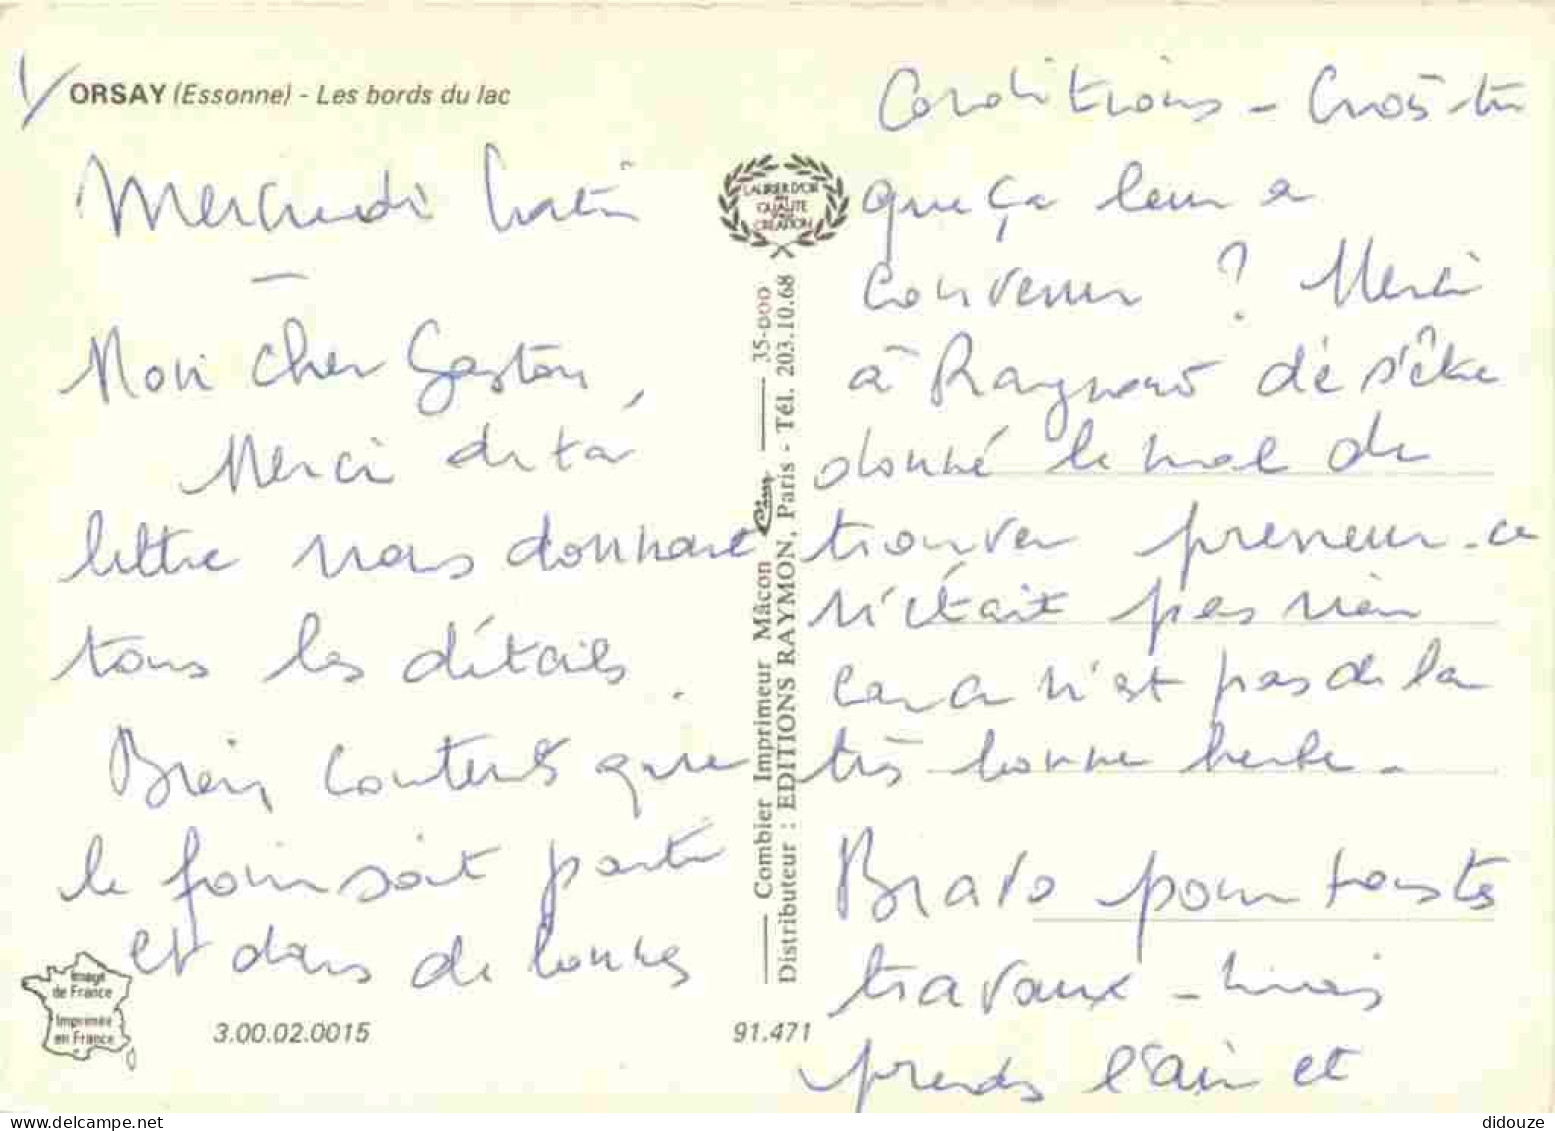 1/
ORSAY (Essonne) - Les bords du lac
Mercredi matin
Mon cher Gaston,
Merci de ta
lettre nous donnant
tous les détails.
Bien contents que
le foin soit parti
et dans de bonnes
Image
de France
Imprimée
en France
3.00.02.0015
91.471
LAURIER D'OR
QUALITE
CREATION
Combier Imprimeur Mâcon Cim 35-DOO
Distributeur : EDITIONS RAYMON, Paris - Tél. 203.10.68
Conditions - Crois-tu
que ça leur a
convenu ? Merci
à Raymond de s'être
donné le mal de
trouver preneur - ce
n'était pas rien
car ce n'est pas de la
très bonne herbe -
Bravo pour tous tes
travaux - mais
prends l'air et
didouze